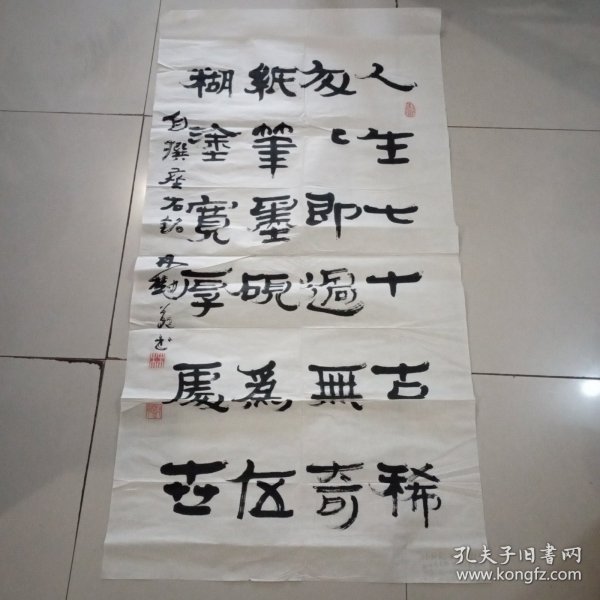 人生七十古稀
即過無奇
紙筆墨硯為伍
糊塗寬厚處世
自撰座右銘
孔夫子旧书网
www.kongfz.com